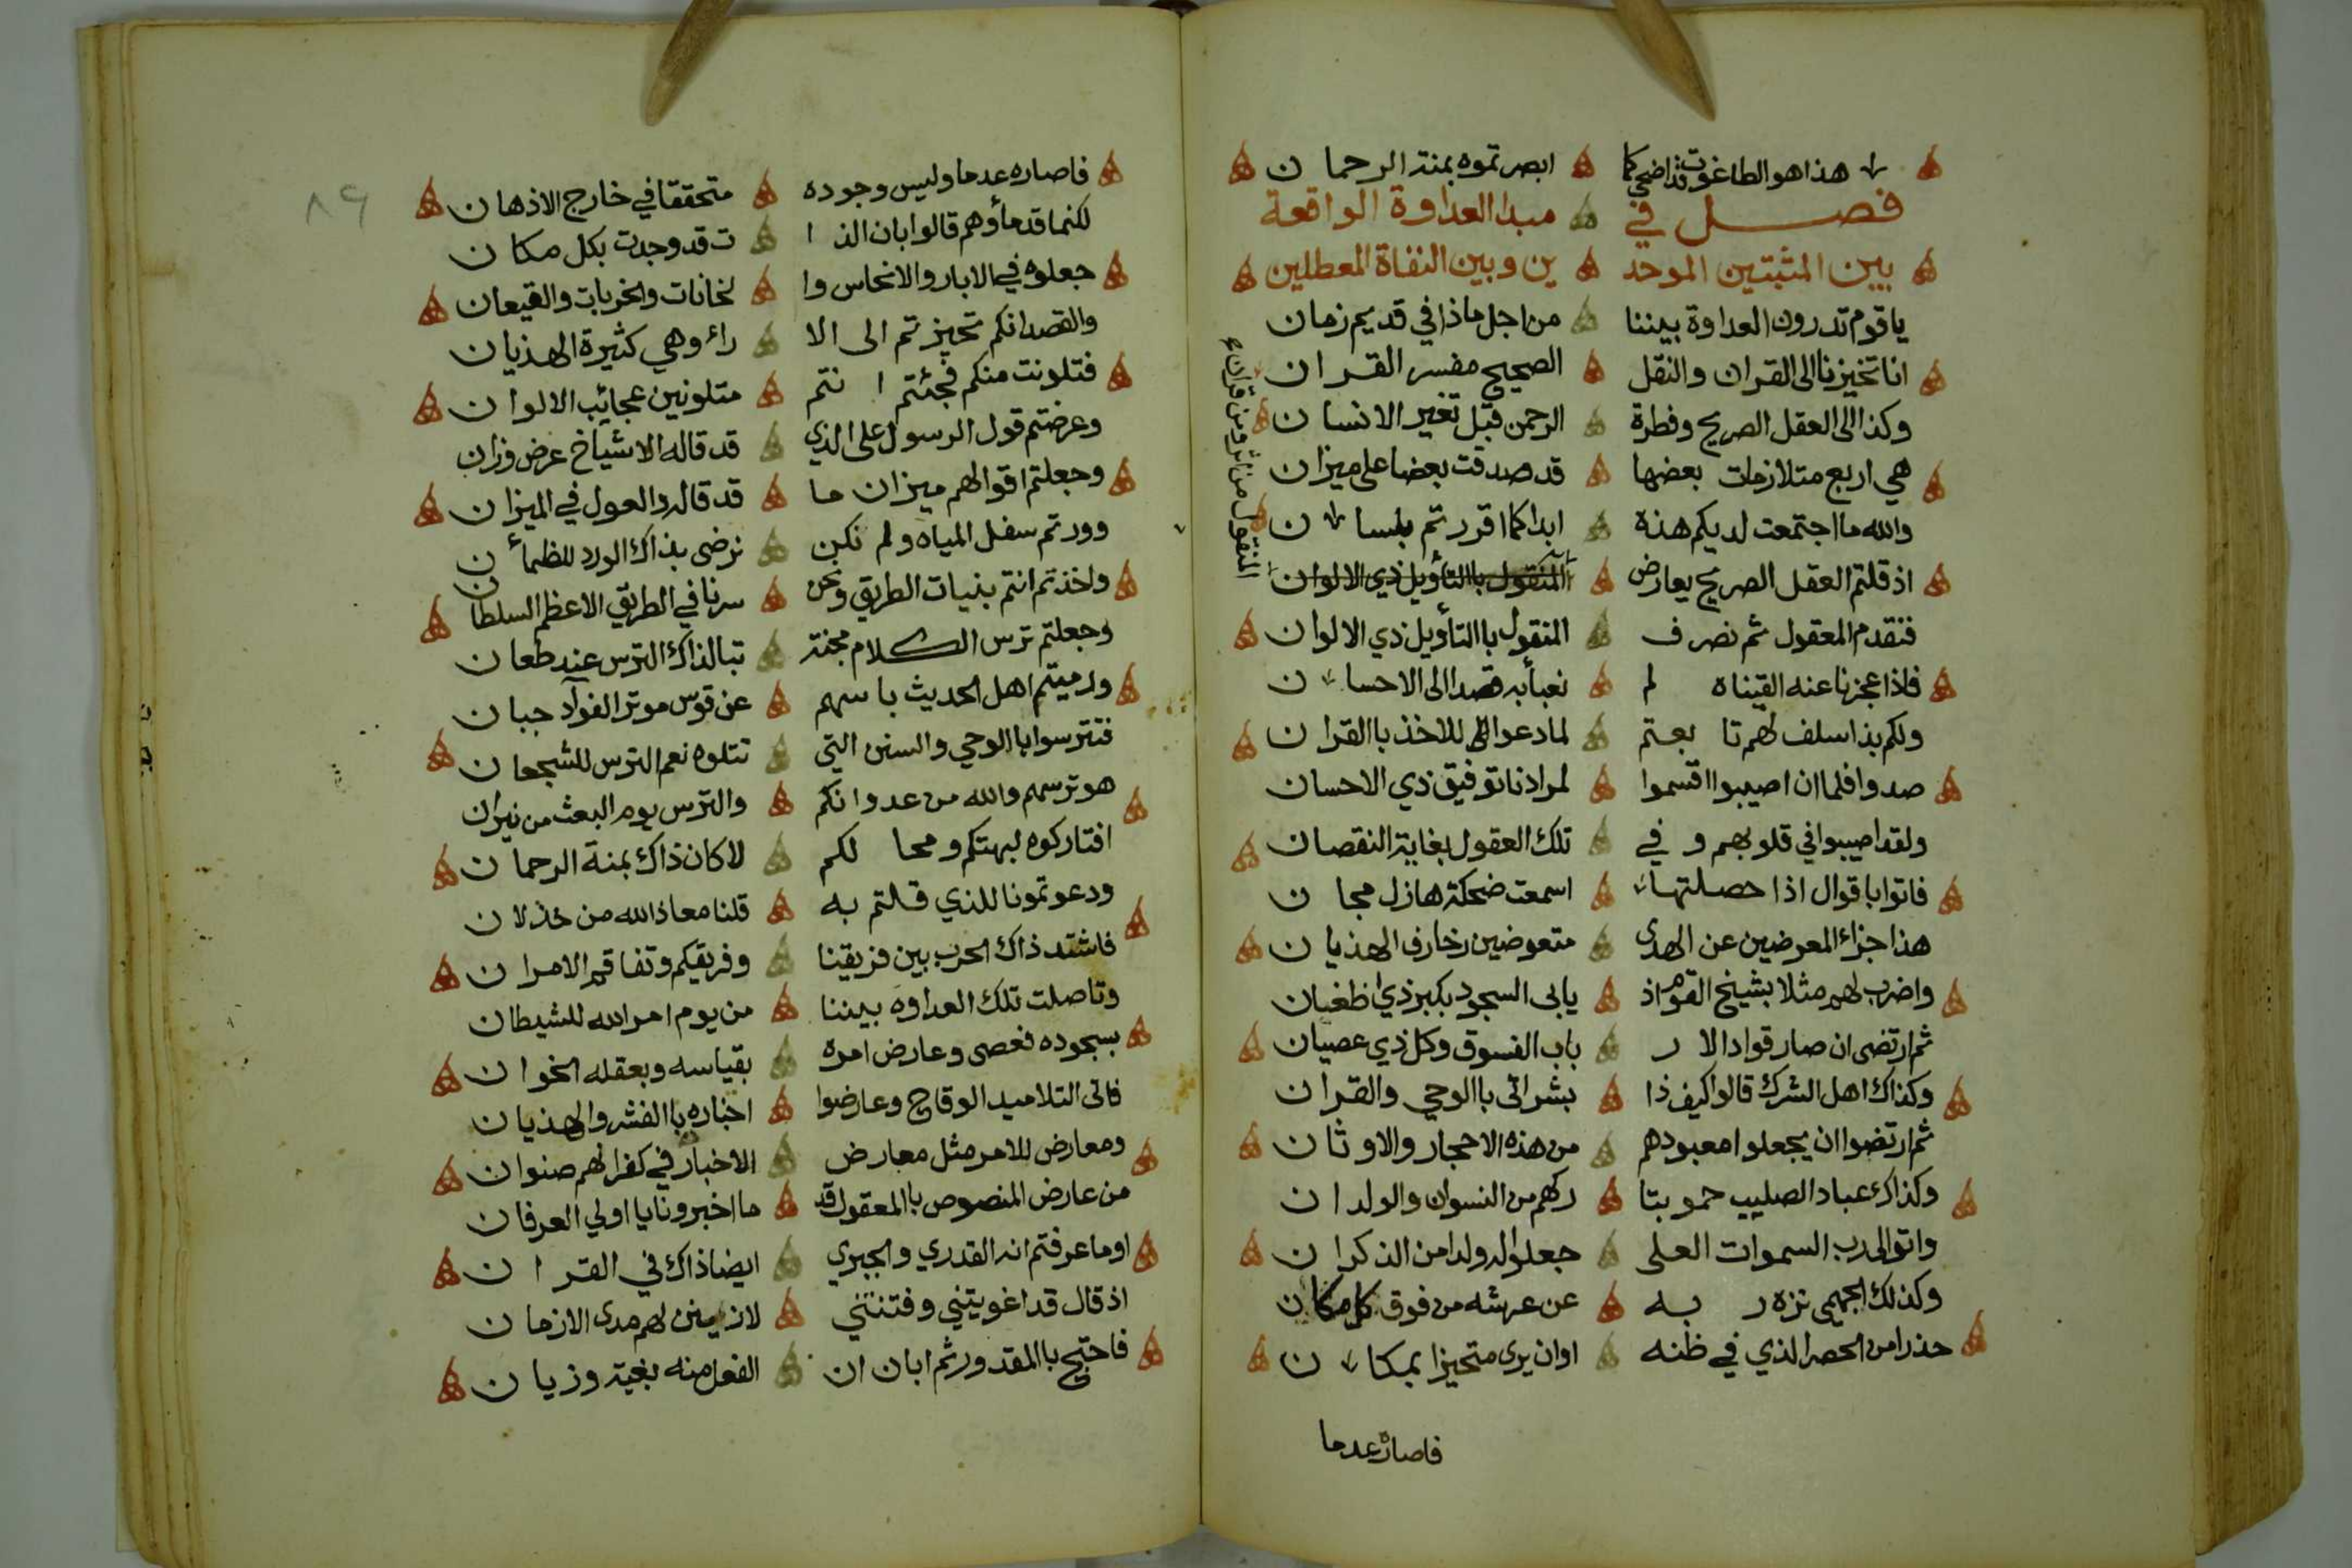 هذا هو الطاغوت قد اضحى كما ابصرتموه بمنة الرحمان
فصل في مبدا العداوة الواقعة
بين المثبتين الموحد ين وبين النفاة المعطلين
يا قوم تدرون العداوة بيننا من اجل ماذا في قديم زمان
انا تحيزنا الى القران والنقل الصحيح مفسر القران
وكذا الى العقل الصريح وفطرة الرحمن قبل تغير الانسان
هي اربع متلازمات بعضها قد صدقت بعضا على ميزان
والله ما اجتمعت لديكم هذه ابدا كما اقررتم بلسان
اذ قلتم العقل الصريح يعارض المنقول باالتأويل ذي الالوان
المنقول من اثر ومن قران
فنقدم المعقول ثم نصرف المنقول باالتأويل ذي الالوان
فاذا عجزنا عنه القيناه لم نعبأ به قصدا الى الاحسان
ولكم بذا سلف لهم تابعتم لما دعوا للاخذ باالقران
صدوا فلما ان اصيبوا اقسموا لمرادنا توفيق ذي الاحسان
ولقد اصيبوا في قلوبهم وفي تلك العقول بغاية النقصان
فاتوا باقوال اذا حصلتها اسمعت ضحكة هازل مجان
هذا جزاء المعرضين عن الهدى متعوضين زخارف الهذيان
واضرب لهم مثلا بشيخ القوم اذ يابى السجود بكبر ذي طغيان
ثم ارتضى ان صار قوادا لار باب الفسوق وكل ذي عصيان
وكذاك اهل الشرك قالوا كيف ذا بشر اتى باالوحي والقران
ثم ارتضوا ان يجعلوا معبودهم من هذه الاحجار والاوثان
وكذاك عباد الصليب حموا بتا ركهم من النسوان والولدان
واتوا الى رب السموات العلى جعلوا له ولدا من الذكران
وكذلك الجهمي نزه ربه عن عرشه من فوق كل مكان
حذرا من الحصر الذي في ظنه او ان يرى متحيزا بمكان
فاصاره عدما
٨٩
فاصاره عدما وليس وجوده متحققا في خارج الاذهان
لكنما قدمأوهم قالوا بان الذا ت قد وجدت بكل مكان
جعلوه في الابار والانجاس وا لخانات والخربات والقيعان
والقصد انكم تحيزتم الى الا راء وهي كثيرة الهذيان
فتلونت منكم فجئتم انتم متلونين عجائب الالوان
وعرضتم قول الرسول على الذي قد قاله الاشياخ عرض وزان
وجعلتم اقوالهم ميزان ما قد قاله والعول في الميزان
ووردتم سفل المياه ولم نكن نرضى بذاك الورد للظمأن
واخذتم انتم بنيات الطريق ونحن سرنا في الطريق الاعظم السلطان
وجعلتم ترس الكلام مجنة تبا لذاك الترس عند طعان
ورميتم اهل الحديث باسهم عن قوس موتر الفوآد جبان
فتترسوا باالوحي والسنن التي تتلوه نعم الترس للشجعان
هو ترسهم والله من عدوانكم والترس يوم البعث من نيران
افتاركوه لبهتكم ومحا لكم لا كان ذاك بمنة الرحمان
ودعوتمونا للذي قلتم به قلنا معاذ الله من خذلان
فاشتد ذاك الحرب بين فريقنا وفريقكم وتفاقم الامران
وتاصلت تلك العداوه بيننا من يوم امر الله للشيطان
بسجوده فعصى وعارض امره بقياسه وبعقله الخوان
فاتى التلاميد الوقاح وعارضوا اخباره باالفشر والهذيان
ومعارض للامر مثل معارض الاخبار في كفرانهم صنوان
من عارض المنصوص باالمعقول قد ما اخبرونا يا اولي العرفان
او ما عرفتم انه القدري والجبري ايضا ذاك في القران
اذ قال قد اغويتني وفتنتني لازينن لهم مدى الازمان
فاحتج باالمقدور ثم ابان ان الفعل منه بغية وزيان